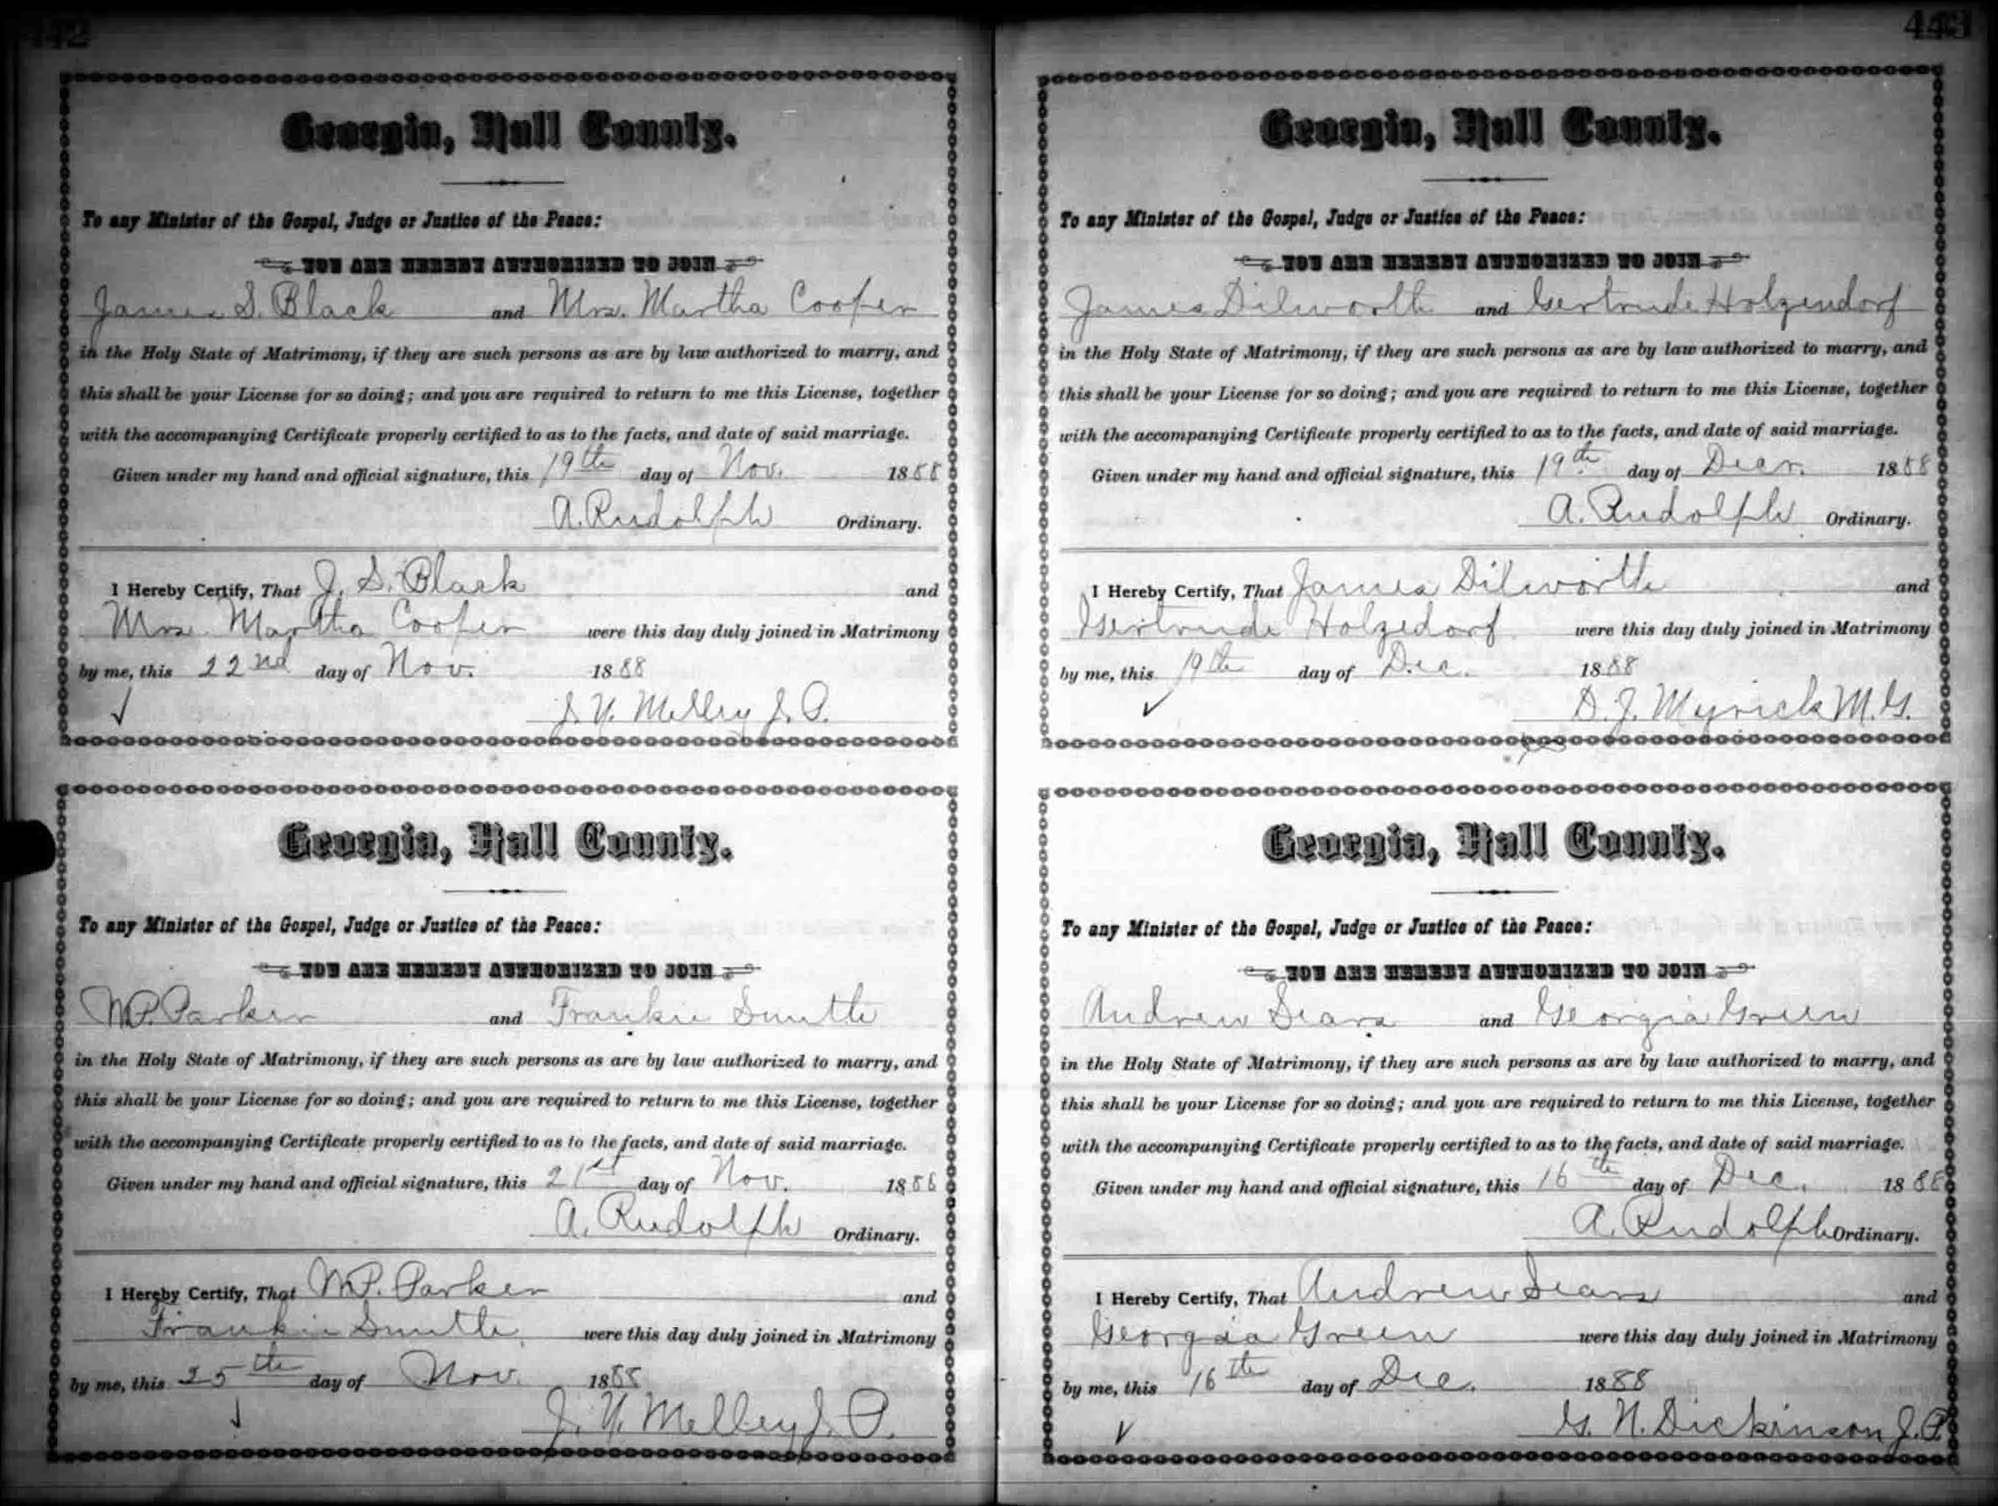 442
Georgia, Hall County.
To any Minister of the Gospel, Judge or Justice of the Peace:
YOU ARE HEREBY AUTHORIZED TO JOIN
James S. Black and Mrs. Martha Cooper
in the Holy State of Matrimony, if they are such persons as are by law authorized to marry, and
this shall be your License for so doing; and you are required to return to me this License, together
with the accompanying Certificate properly certified to as to the facts, and date of said marriage.
Given under my hand and official signature, this 19th day of Nov. 1888
A. Rudolph Ordinary.
I Hereby Certify, That J. S. Black and
Mrs. Martha Cooper were this day duly joined in Matrimony
by me, this 22nd day of Nov. 1888
J. Y. J. P.
Georgia, Hall County.
To any Minister of the Gospel, Judge or Justice of the Peace:
YOU ARE HEREBY AUTHORIZED TO JOIN
W.P. Parker and Frankie Smith
in the Holy State of Matrimony, if they are such persons as are by law authorized to marry, and
this shall be your License for so doing; and you are required to return to me this License, together
with the accompanying Certificate properly certified to as to the facts, and date of said marriage.
Given under my hand and official signature, this 21st day of Nov. 1888
A. Rudolph Ordinary.
I Hereby Certify, That W.P. Parker and
Frankie Smith were this day duly joined in Matrimony
by me, this 25th day of Nov. 1888
J. Y. J. P.
443
Georgia, Hall County.
To any Minister of the Gospel, Judge or Justice of the Peace:
YOU ARE HEREBY AUTHORIZED TO JOIN
James Dilworth and Gertrude Holzendorf
in the Holy State of Matrimony, if they are such persons as are by law authorized to marry, and
this shall be your License for so doing; and you are required to return to me this License, together
with the accompanying Certificate properly certified to as to the facts, and date of said marriage.
Given under my hand and official signature, this 19th day of Decr. 1888
A. Rudolph Ordinary.
I Hereby Certify, That James Dilworth and
Gertrude Holzedorf were this day duly joined in Matrimony
by me, this 19th day of Dec. 1888
D. J. Myrick M. G.
Georgia, Hall County.
To any Minister of the Gospel, Judge or Justice of the Peace:
YOU ARE HEREBY AUTHORIZED TO JOIN
Andrew Sears and Georgia Green
in the Holy State of Matrimony, if they are such persons as are by law authorized to marry, and
this shall be your License for so doing; and you are required to return to me this License, together
with the accompanying Certificate properly certified to as to the facts, and date of said marriage.
Given under my hand and official signature, this 16th day of Dec. 1888
A. Rudolph Ordinary.
I Hereby Certify, That Andrew Sears and
Georgia Green were this day duly joined in Matrimony
by me, this 16th day of Dec. 1888
G. N. Dickinson J. P.